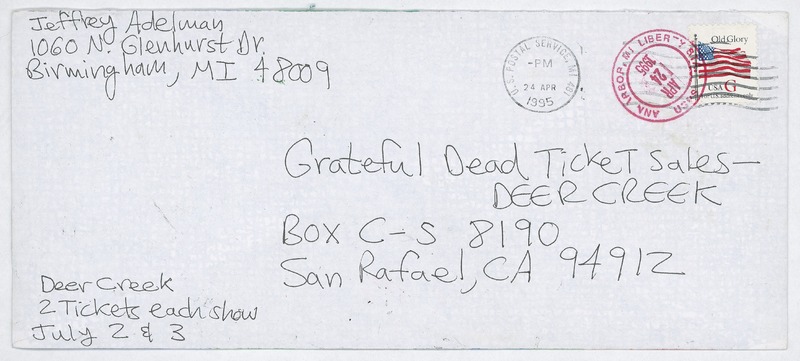 Jeffrey Adelman
1060 N. Glenhurst Dr.
Birmingham, MI 48009
U.S. POSTAL SERVICE, MI 481
-PM
24 APR
1995
ANN ARBOR, MI LIBERTY
APR
24
1995
Old Glory
USA G
Grateful Dead Ticket Sales—
DEER CREEK
Box C-S 8190
San Rafael, CA 94912
Deer Creek
2 Tickets each show
July 2 & 3